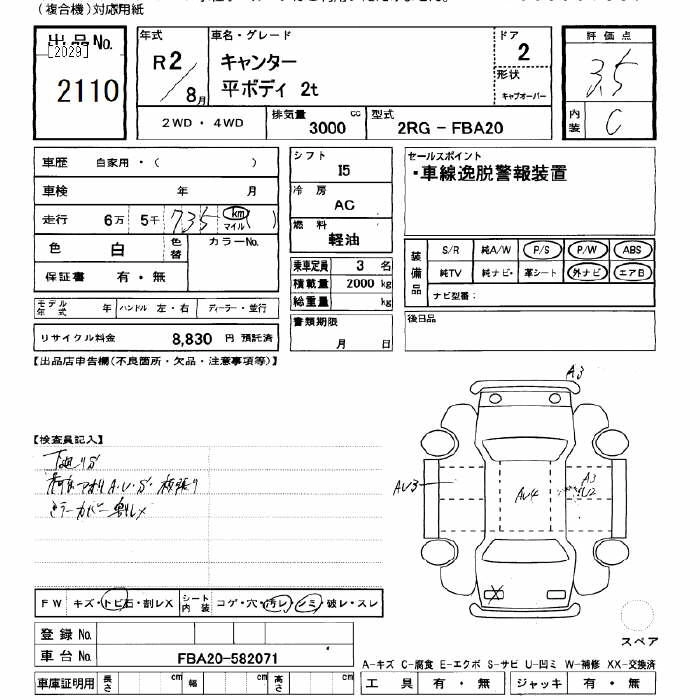 (複合機)対応用紙
出品No.
[2029]
2110
年式
R2/8月
車名・グレード
キャンター
平ボディ 2t
ドア
2
形状
キャブオーバー
評価点
3.5
内装
C
2WD・4WD
排気量 cc
3000
型式
2RG - FBA20
車歴 自家用・( )
車検 年 月
走行 6万 5千 735 km マイル ( )
色 白 色替 カラーNo.
保証書 有・無
モデル年式 年 ハンドル 左・右 ディーラー・並行
リサイクル料金 8,830 円 預託済
シフト
I5
冷房
AC
燃料
軽油
乗車定員 3 名
積載量 2000 kg
総重量 kg
書類期限
月 日
セールスポイント
・車線逸脱警報装置
装備品
S/R 純A/W P/S P/W ABS
純TV 純ナビ・ 革シート 外ナビ エアB
ナビ型番:
後日品
【出品店申告欄(不良箇所・欠品・注意事項等)】
【検査員記入】
下廻りサ
A・U・S 板張り
ミラーカバー割レX
A3
AU3
AU4
A3
AU2
X
FW キズ・トビ石・割レX
シート内装 コゲ・穴・汚レ・シミ・破レ・スレ
登録No.
車台No. FBA20-582071
車庫証明用 長さ cm 幅 cm 高さ cm
スペア
A-キズ C-腐食 E-エクボ S-サビ U-凹ミ W-補修 XX-交換済
工具 有・無 ジャッキ 有・無